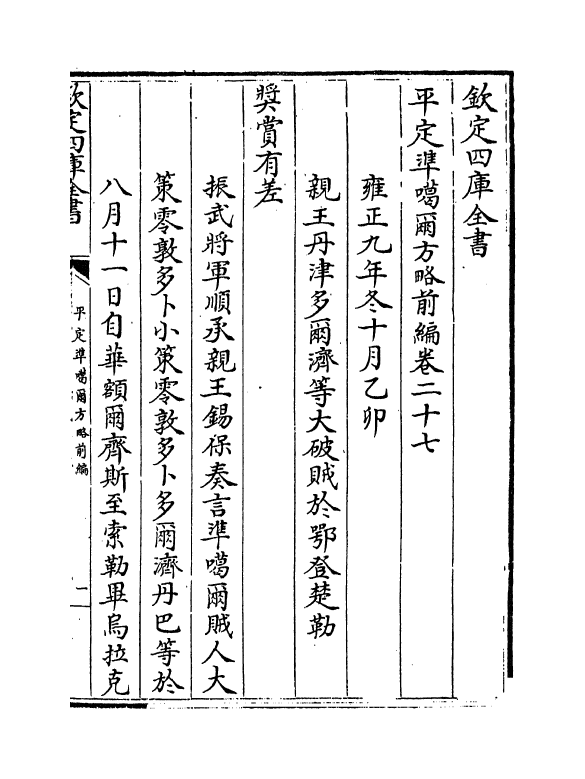 欽定四庫全書
平定準噶爾方略前編卷二十七
雍正九年冬十月乙卯
親王丹津多爾濟等大破賊於鄂登楚勒
奬賞有差
振武將軍順承親王錫保奏言準噶爾賊人大
策零敦多卜小策零敦多卜多爾濟丹巴等於
八月十一日自華額爾齊斯至索勒畢烏拉克
欽定四庫全書
平定準噶爾方略前編